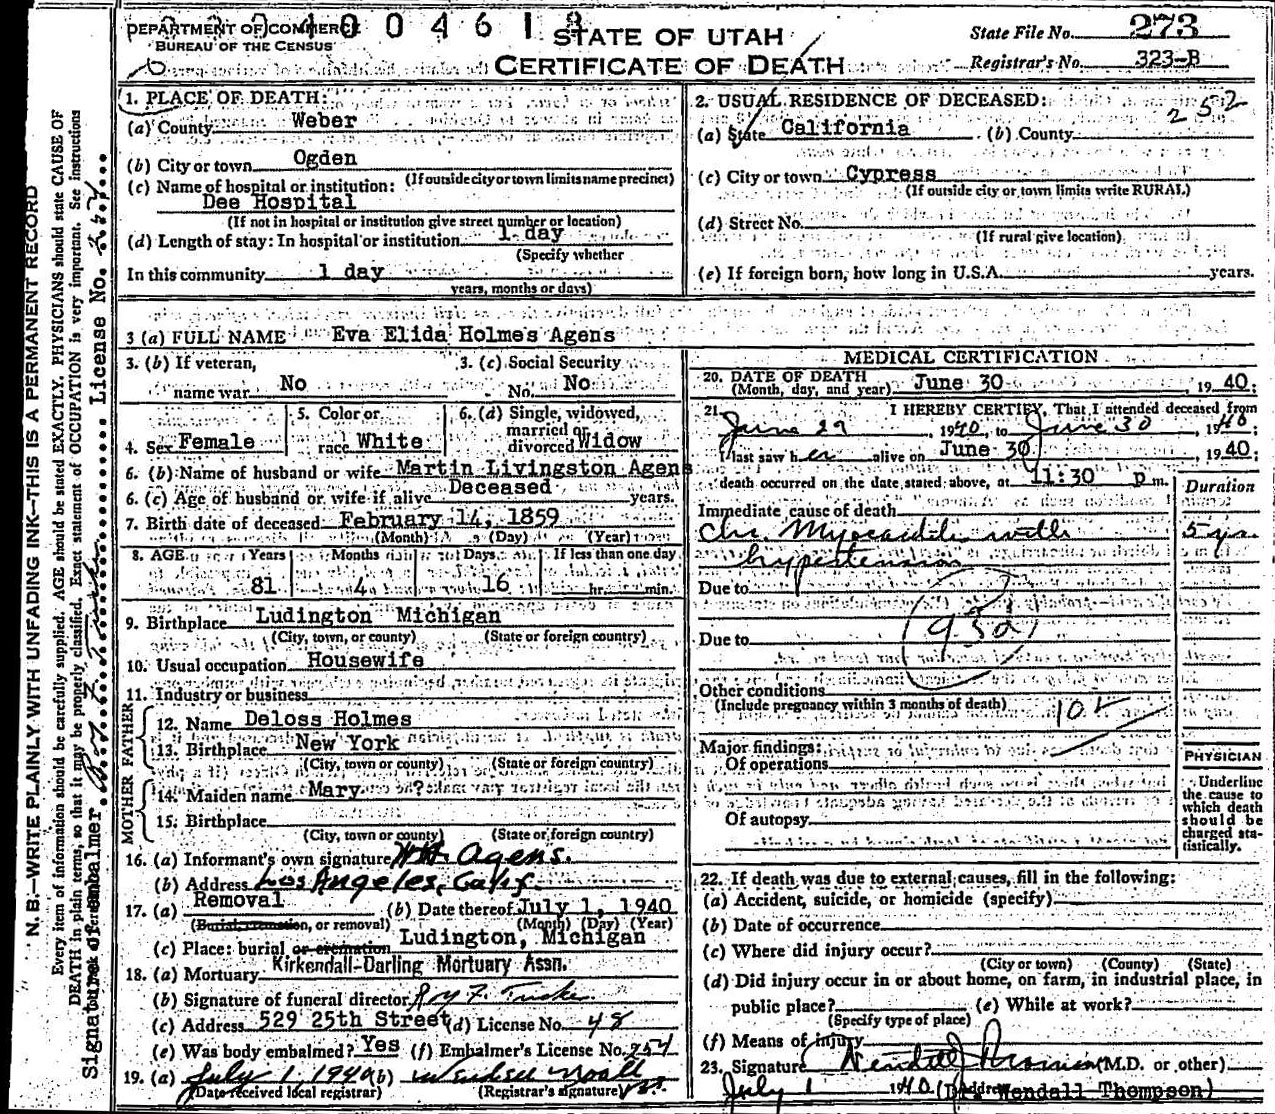 DEPARTMENT OF COMMERCE
BUREAU OF THE CENSUS
STATE OF UTAH
CERTIFICATE OF DEATH
State File No. 273
Registrar's No. 323-B
N. B.—WRITE PLAINLY WITH UNFADING INK—THIS IS A PERMANENT RECORD
Every item of information should be carefully supplied. AGE should be stated EXACTLY. PHYSICIANS should state CAUSE OF
DEATH in plain terms, so that it may be properly classified. Exact statement of OCCUPATION is very important. See instructions
Signature of embalmer License No.
1. PLACE OF DEATH:
(a) County Weber
(b) City or town Ogden
(If outside city or town limits name precinct)
(c) Name of hospital or institution:
Dee Hospital
(If not in hospital or institution give street number or location)
(d) Length of stay: In hospital or institution 1 day
(Specify whether
In this community 1 day
years, months or days)
2. USUAL RESIDENCE OF DECEASED:
252
(a) State California (b) County
(c) City or town Cypress
(If outside city or town limits write RURAL)
(d) Street No.
(If rural give location)
(e) If foreign born, how long in U.S.A. years.
3 (a) FULL NAME Eva Elida Holmes Agens
3. (b) If veteran, name war No
3. (c) Social Security No. No
4. Sex Female
5. Color or race White
6. (d) Single, widowed, married or divorced Widow
6. (b) Name of husband or wife Martin Livingston Agens
6. (c) Age of husband or wife if alive Deceased years.
7. Birth date of deceased February 14, 1859
(Month) (Day) (Year)
8. AGE Years Months Days If less than one day
81 4 16 hr. min.
9. Birthplace Ludington Michigan
(City, town, or county) (State or foreign country)
10. Usual occupation Housewife
11. Industry or business
FATHER
12. Name Deloss Holmes
13. Birthplace New York
(City, town, or county) (State or foreign country)
MOTHER
14. Maiden name Mary ?
15. Birthplace
(City, town or county) (State or foreign country)
16. (a) Informant's own signature W.H. Agens.
(b) Address Los Angeles, Calif.
17. (a) Removal (b) Date thereof July 1, 1940
(Burial, cremation, or removal) (Month) (Day) (Year)
(c) Place: burial or cremation Ludington, Michigan
18. (a) Mortuary Kirkendall-Darling Mortuary Assn.
(b) Signature of funeral director Roy F. Tucker
(c) Address 529 25th Street (d) License No. 48
(e) Was body embalmed? Yes (f) Embalmer's License No. 254
19. (a) July 1, 1940 (b)
(Date received local registrar) (Registrar's signature)
MEDICAL CERTIFICATION
20. DATE OF DEATH June 30, 1940;
(Month, day, and year)
21. I HEREBY CERTIFY, That I attended deceased from
June 29, 1940, to June 30, 1940
I last saw her alive on June 30, 1940;
death occurred on the date stated above, at 11:30 p m.
Duration
Immediate cause of death
Chr. Myocarditis with 5 yrs.
hypertension
Due to
93d
Due to
Other conditions
(Include pregnancy within 3 months of death)
Major findings:
Of operations
Of autopsy
PHYSICIAN
Underline
the cause to
which death
should be
charged sta-
tistically.
22. If death was due to external causes, fill in the following:
(a) Accident, suicide, or homicide (specify)
(b) Date of occurrence
(c) Where did injury occur?
(City or town) (County) (State)
(d) Did injury occur in or about home, on farm, in industrial place, in
public place? (e) While at work?
(Specify type of place)
(f) Means of injury
23. Signature Wendell J Thomson (M.D. or other)
July 1 1940 (Dr. Wendall Thompson)